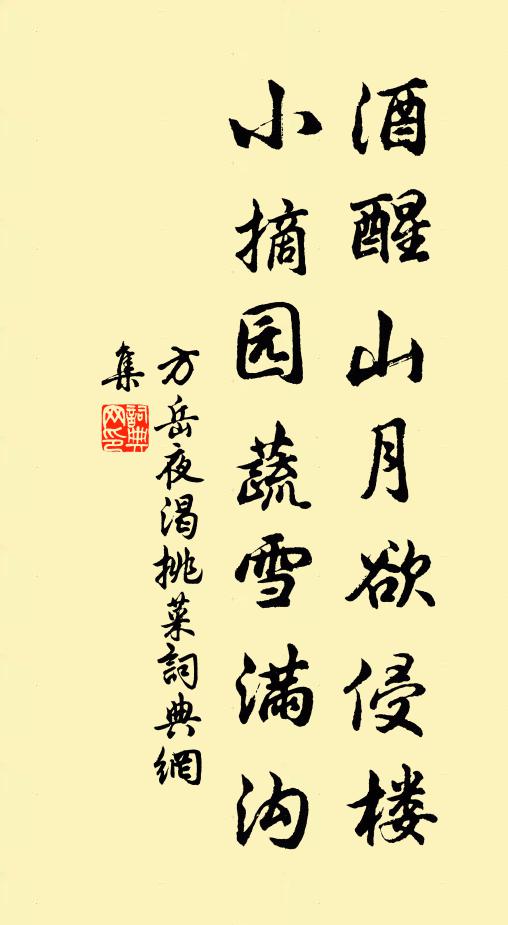 酒醒山月欲侵楼
小摘园蔬雪满沟
方岳夜渴挑菜詞典網
集
詞典
网印